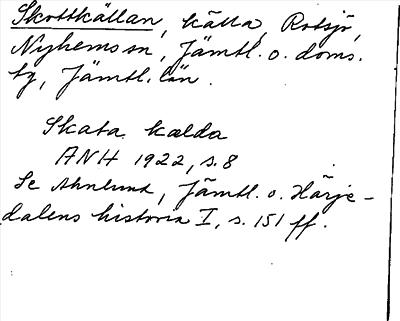 Skottkällan, källa, Rotsjö,
Nyhems sn, Jämtl. o. doms.
tg, Jämtl. län.
Skata kalda
ANH 1922, s. 8
Se Ahnlund, Jämtl. o. Härje-
dalens historia I, s. 151 ff.